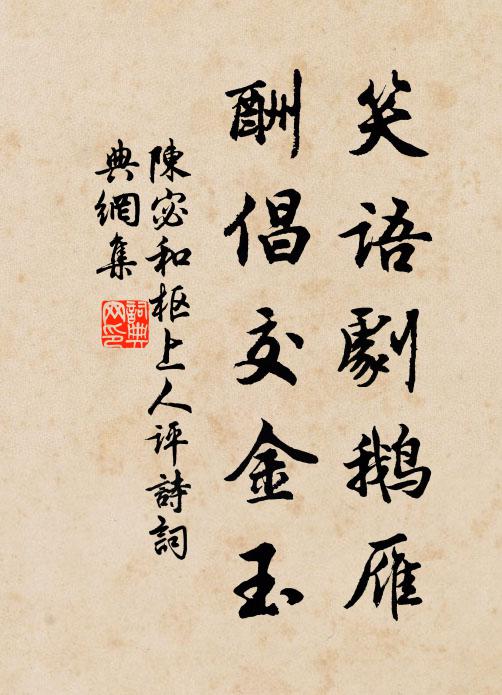 笑语劇鹅雁
酬倡交金玉
陳宓和枢上人评詩詞
典網集
詞典网印